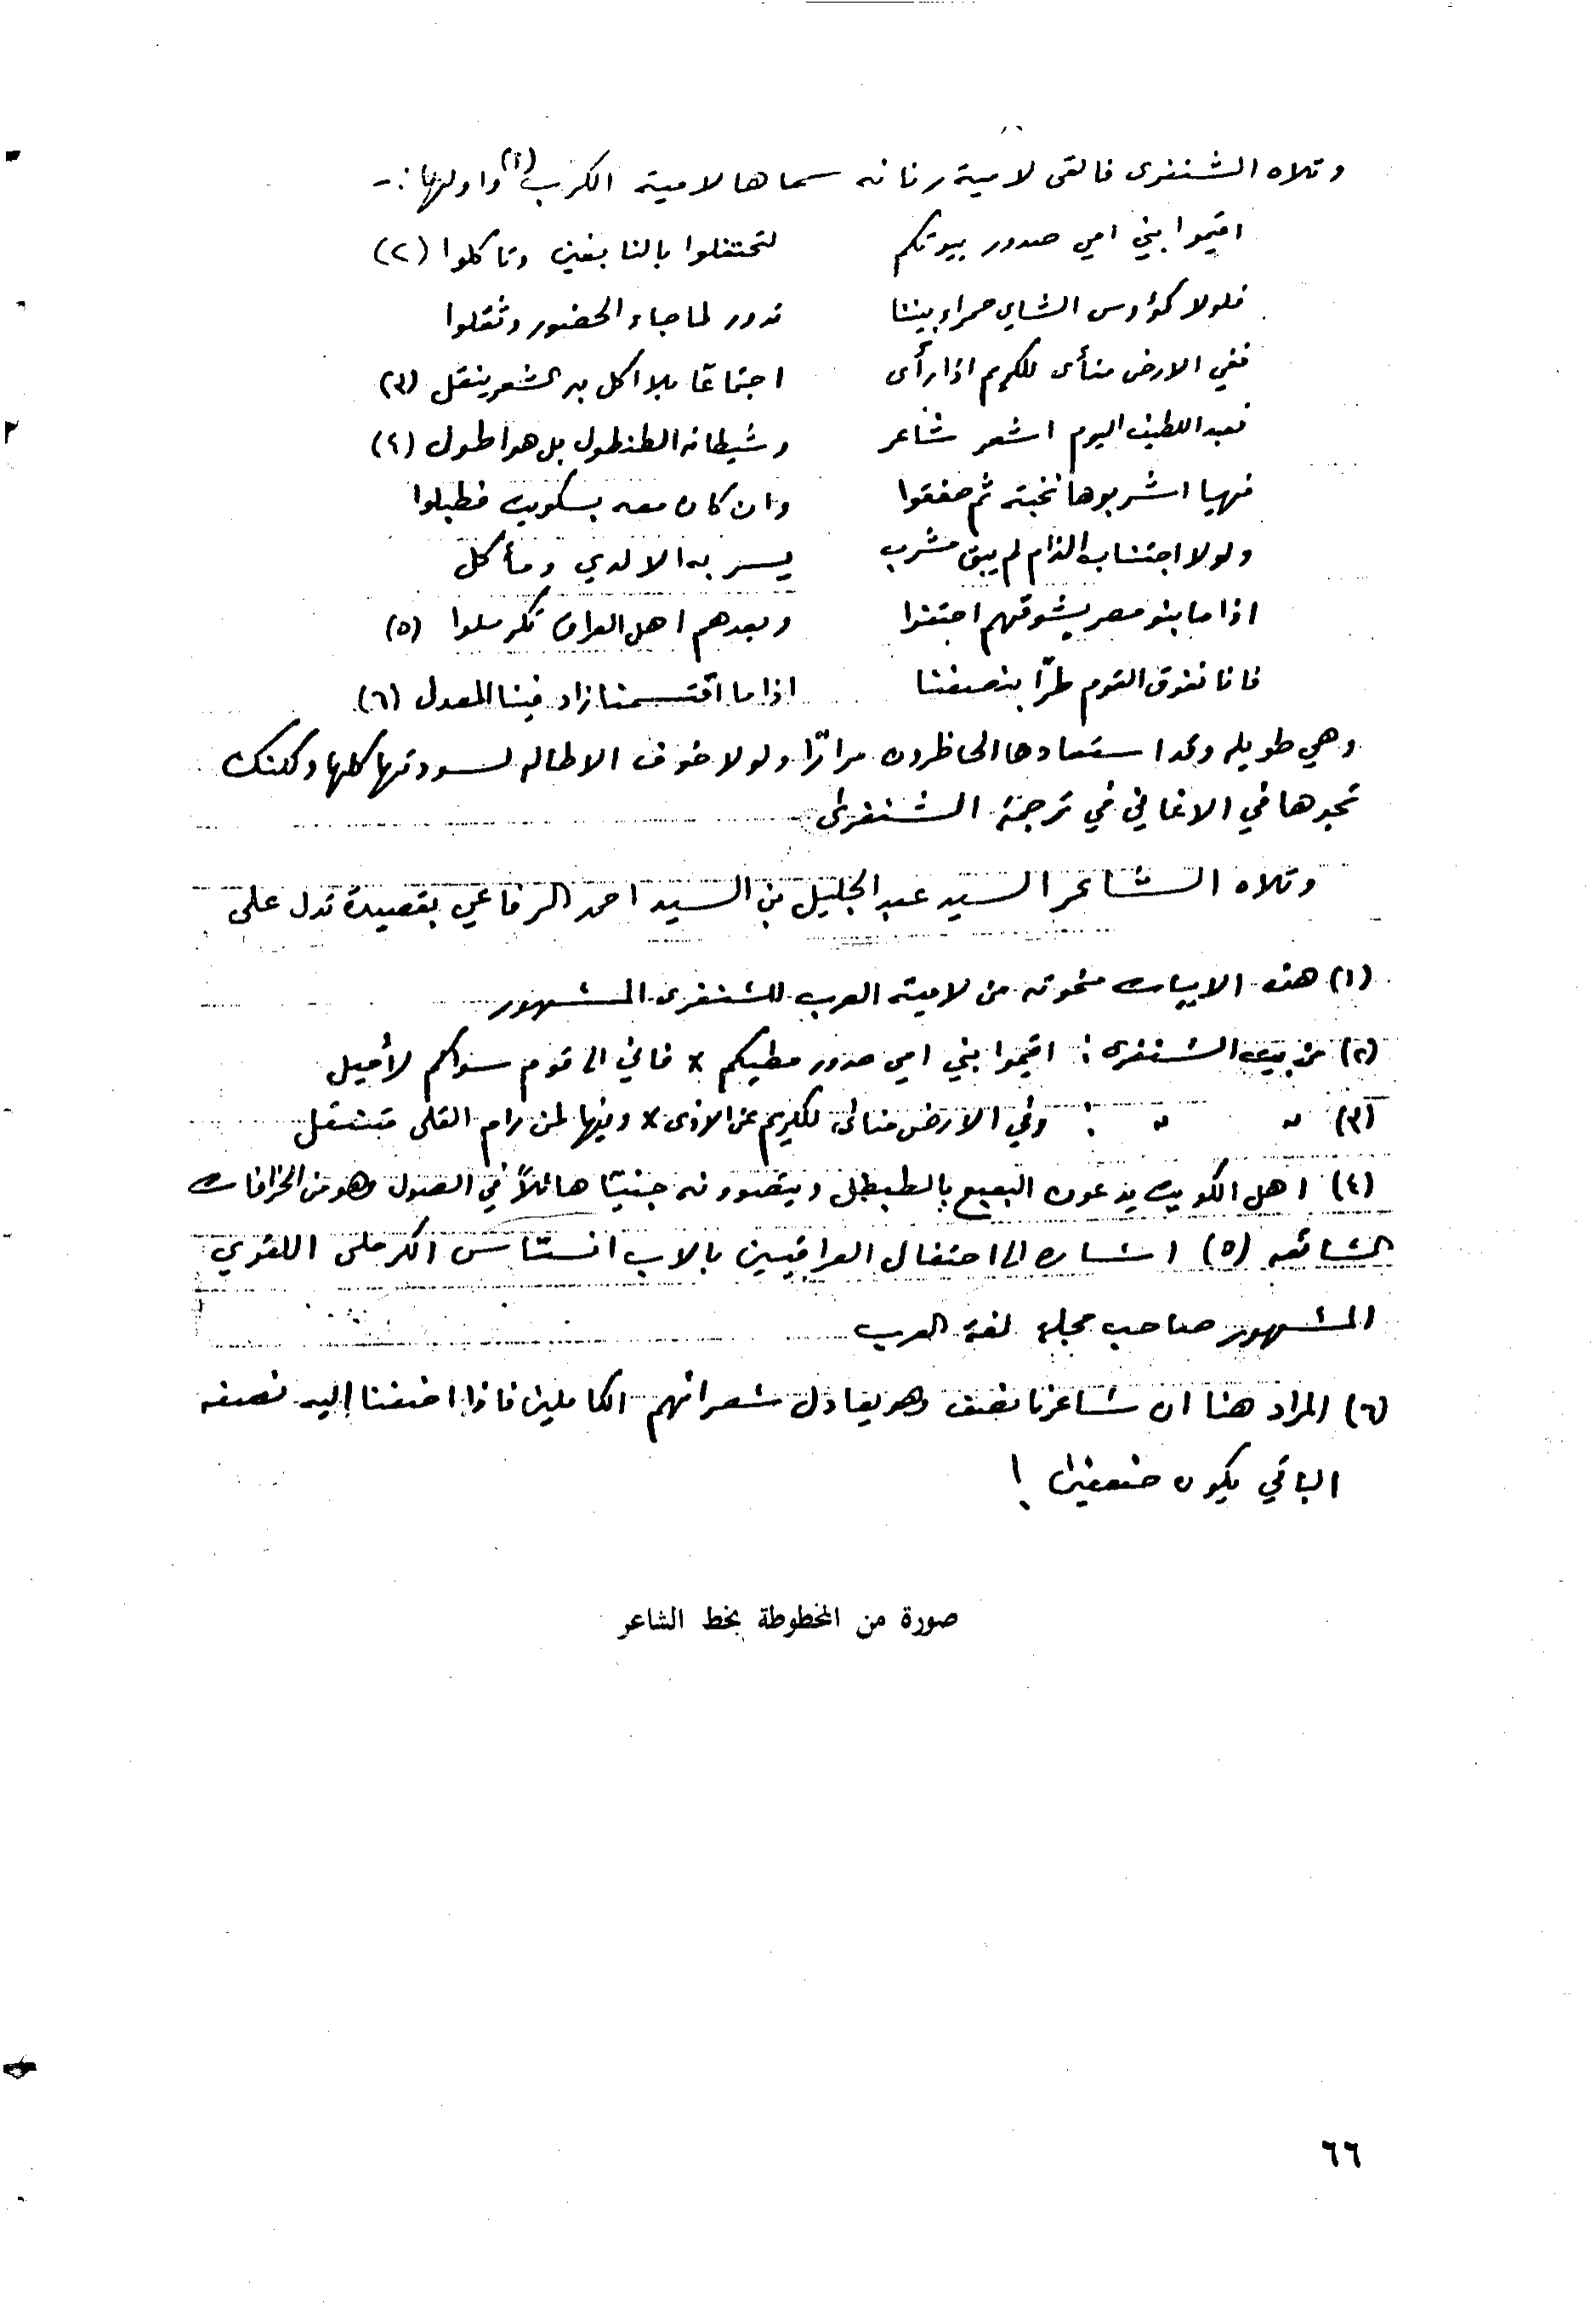 وتلاه الشنفرى فالقى لامية رنانه سماها لامية الكرب (١) واولها :-
اقيموا بني امي صدور بيوتكم لتحتفلوا بالنابغين وتأكلوا (٢)
فلولا كؤوس الشاي حمراء بيننا تدور لما جاء الحضور وثقلوا
ففي الارض منأى للكريم اذا رأى اجتماعًا بلا اكل به الشعر ينقل (٣)
فعبد اللطيف اليوم اشعر شاعر وشيطانه الطنطول بل هو اطول (٤)
فهيا اشربوها نخبته ثم صفقوا وان كان معه بسكويت فطبلوا
ولولا اجتناب الذام لم يبق مشرب يسر به الا لدي ومأكل
اذا ما بنو مصر بشوقيهم احتفوا وبعدهم اهل العراق تكرملوا (٥)
فانا نفوق القوم طرًّا بنصفنا اذا ما اقتسمنا زاد فينا المعدل (٦)
وهي طويله وقد استعادها الحاظرون مرارًا ولولا خوف الاطاله لسودتها كلها ولكنك
تجدها في الاغاني في ترجمة الشنفرى
وتلاه الشاعر السيد عبد الجليل بن السيد احمد الرفاعي بقصيدة تدل على
(١) هذه الابيات منحوته من لامية العرب للشنفرى المشهور
(٢) من بيت الشنفرى : اقيموا بني امي صدور مطيكم × فاني الى قوم سواكم لأميل
(٣) " " : وفي الارض منائى للكريم عن الاذى × وفيها لمن رام القلى متنقل
(٤) اهل الكويت يدعون البعبع بالطبطل ويتصورونه جنيًا هائلاً في الطول وهو من الخرافات
الشائعه (٥) اشاره الى احتفال العراقيين بالاب انستاس الكرملى اللغوي
المشهور صاحب مجلة لغة العرب
(٦) المراد هنا ان شاعرنا نصف وهو يعادل شعرائهم الكاملين فاذا اضفنا إليه نصفه
الباقي يكون ضعفين !
صورة من المخطوطة بخط الشاعر
٦٦